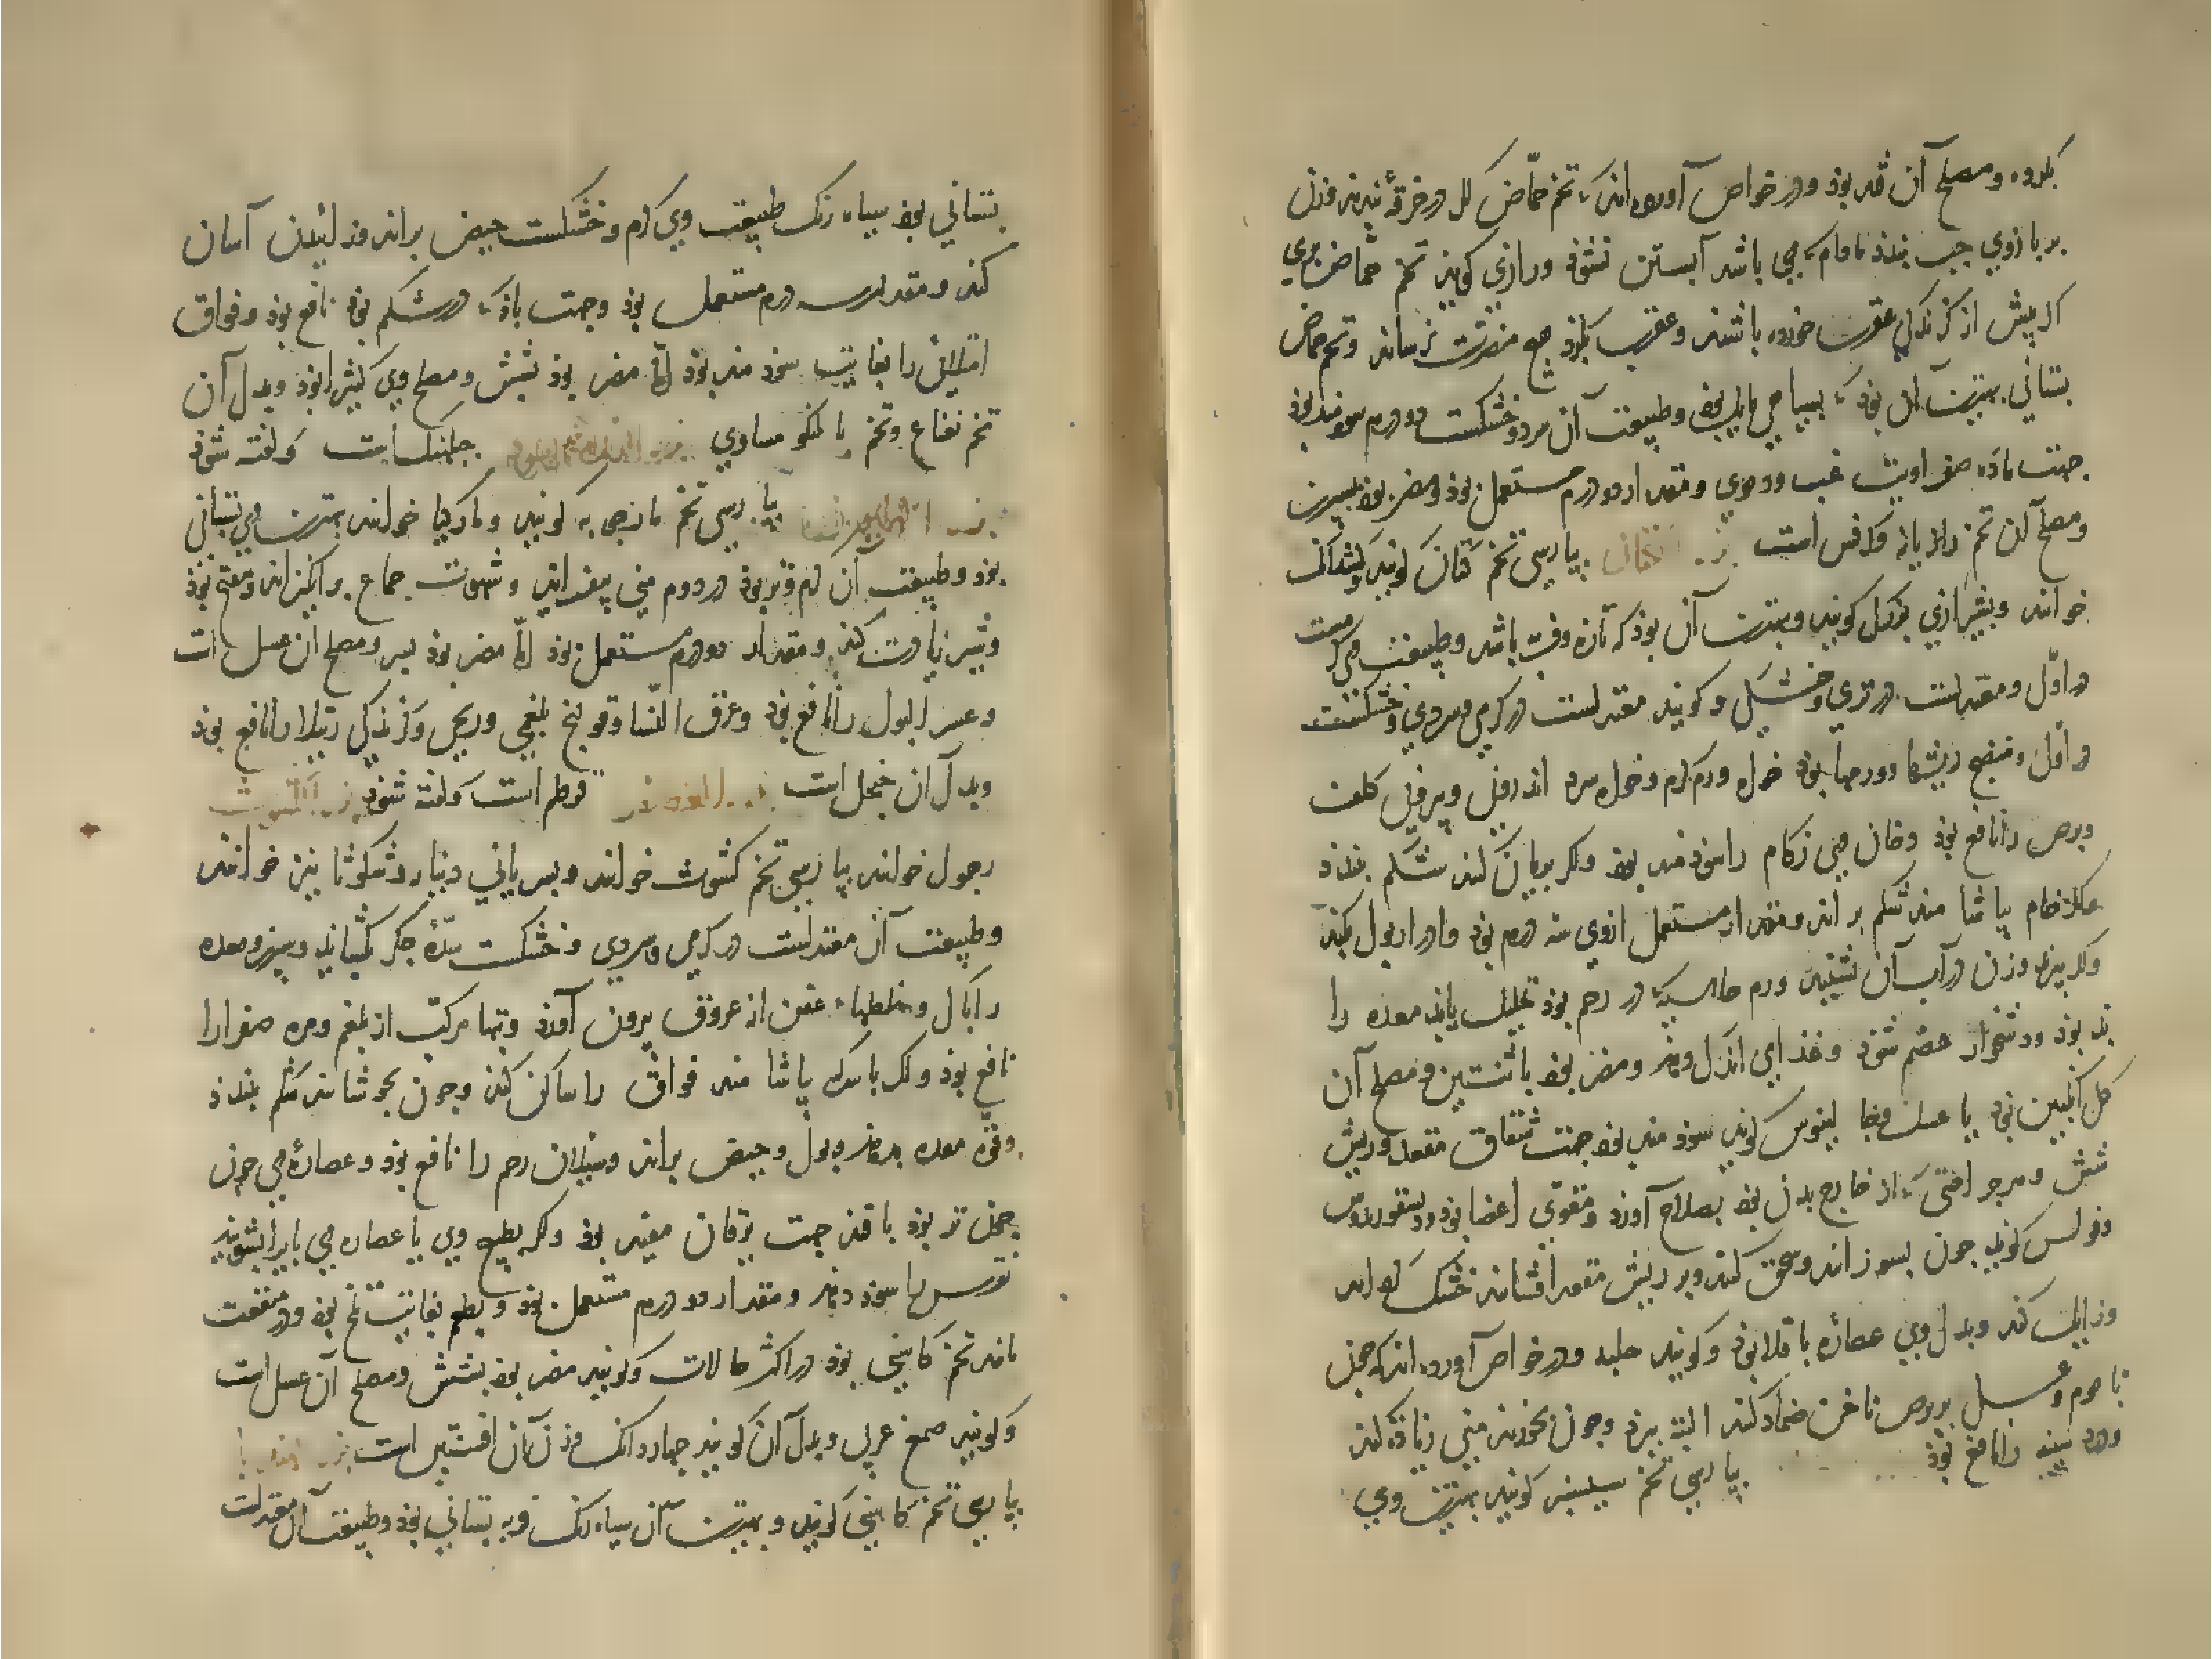 بکرده و مصلح آن قند بوذ و در خواص آورده اند که تخم حماض اکر در خرقهٔ بندند و زن
بر بازوی جب بندذ مادام که با وی باشد آبستن نشوذ و رازی کویذ تخم حماض بری
اکر پیش از کزندکی عقرب خورده باشند و عقرب بکزد هیچ مضرت نرساند و تخم حماض
بستانی بهترین آن بوذ که بسیاهی مایل بوذ و طبیعت آن سرد و خشکست دو درم سودمند بوذ
جهت ماده صفراویت غب و دموی و مقدار دو درم مستعمل بوذ و مضر بوذ بسپرز
و مصلح آن تخم رازیانه و کرفس است بزر کتان بپارسی تخم کتان کویند و بشدانک
خوانند و بشیرازی بزرک کویند و بهترین آن بوذ که تازه و فربه باشد و طبیعت وی کرمست
در اول و معتدلست در تری و خشکی و کویند معتدلست در کرمی و سردی و خشکست
در اول و منضج ریشها و ورمها بوذ خواه ورم کرم و خواه سرد اندرونی و بیرونی کلف
و برص را نافع بوذ و دخان وی زکام را سوذمند بوذ و اکر بریان کنند شکم ببندد
و اکر خام بیاشامند شکم براند و مقدار مستعمل ازوی سه درم بوذ و ادرار بول بکند
و اکر بپزند و زن در آب آن نشیند ورم حار که در رحم بوذ تحلیل یابد معده را
بد بوذ و دشخوار هضم شوذ و غذای اندک دهد و مضر بوذ بانثیین و مصلح آن
کل انکبین بوذ یا عسل و جالینوس کوید سوذمند بوذ جهت شقاق مقعد و ریش
شش و هر جراحتی که از خارج بدن بوذ بصلاح آورد و مقوی اعضا بوذ و دیسقوریدوس
و فولس کویند جون بسوزانند و سحق کنند و بر ریش مقعد افشانند خشک کرداند
و زایل کند و بدل وی عصاره باقلا بوذ و کویند حلبه و در خواص آورده اند که جون
با موم و عسل بر برص ناخن ضماد کنند البته ببرد و جون بخورند منی زیاده کند
و درد سینه را نافع بوذ بپارسی تخم سیسنبر کویند بهترین وی
بستانی بوذ سیاه رنک طبیعت وی کرم و خشکست حیض براند و زائیدن آسان
کند و مقدار سه درم مستعمل بوذ و جهت باذ که در شکم بوذ نافع بوذ و فواق
امتلائی را بغایت سوذمند بوذ اما مضر بوذ بشش و مصلح وی کثیرا بوذ و بدل آن
تخم نعناع و تخم بالنکو مساوی جلبنک است و کفته شوذ
بپارسی تخم مارجوبه کویند و مارکیا خوانند بهترین وی بستانی
بوذ و طبیعت آن کرم و تر بوذ در دوم منی بیفزاید و شهوت جماع برانکیزاند و مفتح بوذ
و شیر زیادت کند و مقدار دو درم مستعمل بوذ اما مضر بوذ بسر و مصلح آن عسل است
و عسر البول را نافع بوذ و عرق النسا و قولنج بلغمی و ریحی و کزندکی رتیلا را نافع بوذ
و بدل آن خنجل است بزر العصفر قرطم است و کفته شوذ بزر الکشوث
رجول خوانند بپارسی تخم کشوث خوانند و بسریانی دینار و شکوثا نیز خوانند
و طبیعت آن معتدلست در کرمی و سردی و خشکست سدهٔ جکر بکشاید و سپرز و معده
را بآب آن و خلطهاء عفن از عروق بیرون آورد و تبها مرکب از بلغم و مره صفرا را
نافع بوذ و اکر با سرکه بیاشامند فواق را ساکن کند و جون بجوشانند شکم ببندد
و قوة معده بدهد و بول و حیض براند و سیلان رحم را نافع بوذ و عصارهٔ وی جون
جون تر بوذ با قند جهت یرقان مفید بوذ و اکر بطبیخ وی یا عصاره وی پایرا بشویند
نقرس را سوذ دهد و مقدار دو درم مستعمل بوذ و بطعم بغایت تلخ بوذ و در منفعت
مانند تخم کاسنی بوذ در اکثر حالات و کویند مضر بوذ بشش و مصلح آن عسل است
و کویند صمغ عربی و بدل آن کویند جهار دانک وزن آن افسنتین است بزر الهندبا
بپارسی تخم کاسنی کویند و بهترین آن سیاه رنک فربه بستانی بوذ و طبیعت آن معتدلست